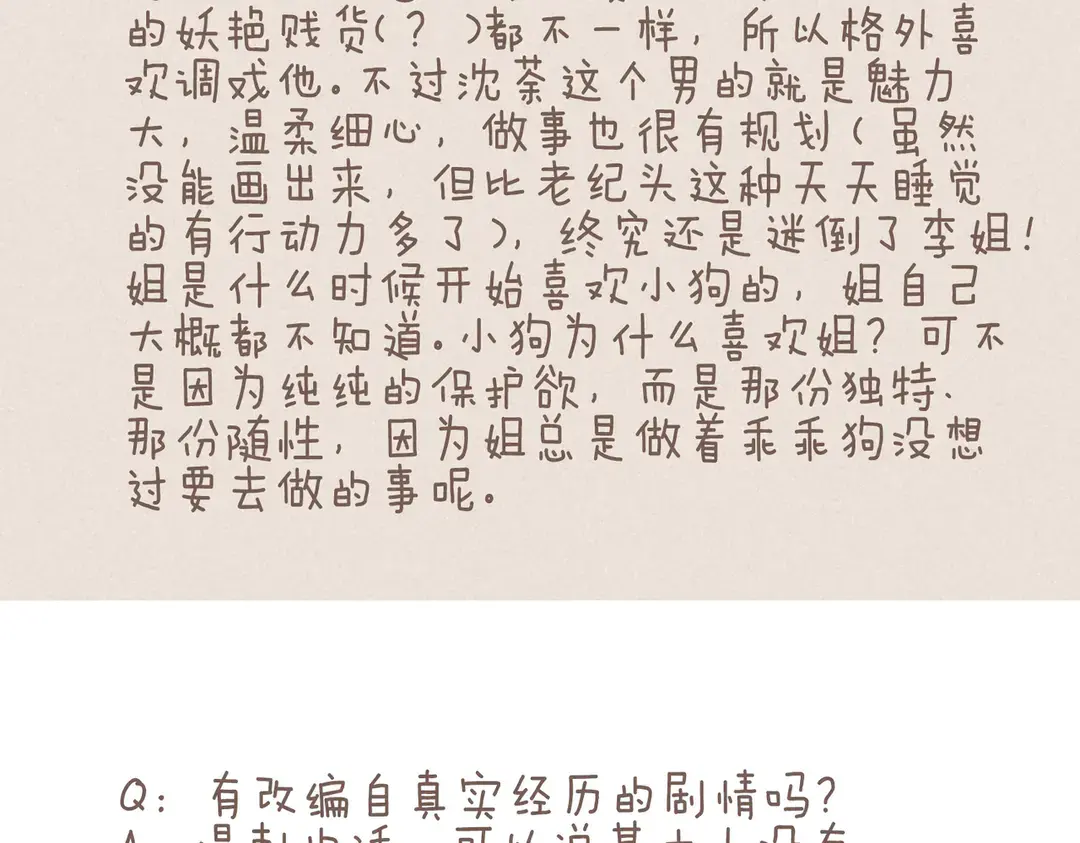 的妖艳贱货(?)都不一样，所以格外喜
欢调戏他。不过沈荼这个男的就是魅力
大，温柔细心，做事也很有规划(虽然
没能画出来，但比老纪头这种天天睡觉
的有行动力多了)，终究还是迷倒了李姐!
姐是什么时候开始喜欢小狗的，姐自己
大概都不知道。小狗为什么喜欢姐?可不
是因为纯纯的保护欲，而是那份独特、
那份随性，因为姐总是做着乖乖狗没想
过要去做的事呢。
Q: 有改编自真实经历的剧情吗?